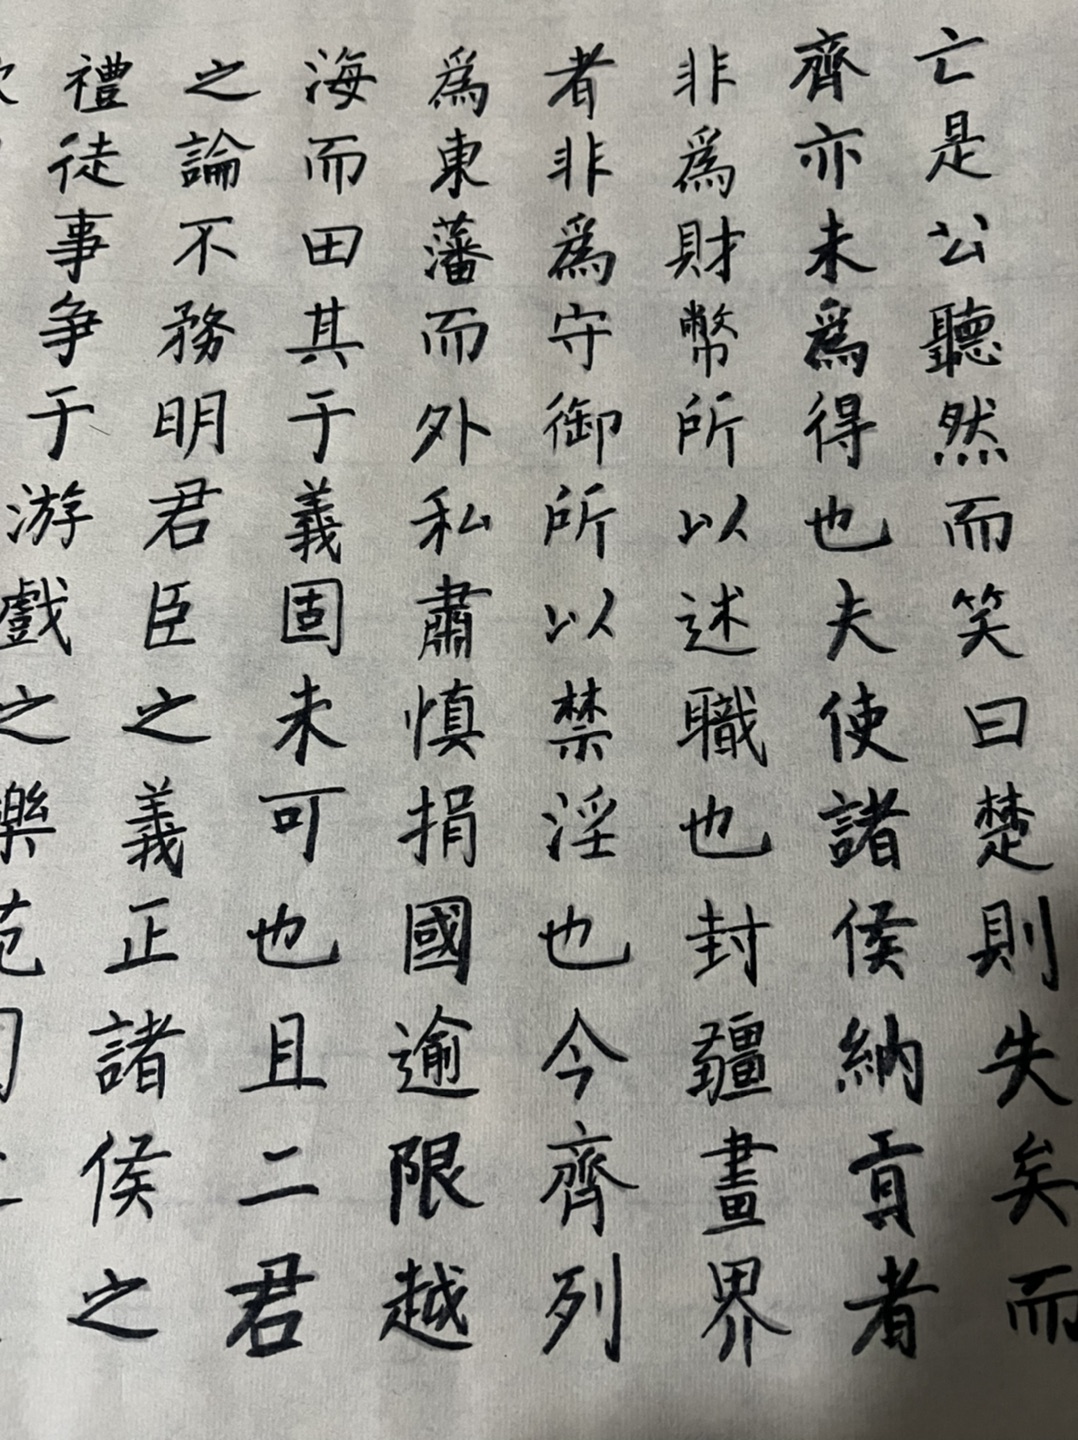 亡是公聽然而笑曰楚則失矣而
齊亦未爲得也夫使諸侯納貢者
非爲財幣所以述職也封疆畫界
者非爲守御所以禁淫也今齊列
爲東藩而外私肅慎捐國逾限越
海而田其于義固未可也且二君
之論不務明君臣之義正諸侯之
禮徒事争于游戲之樂苑